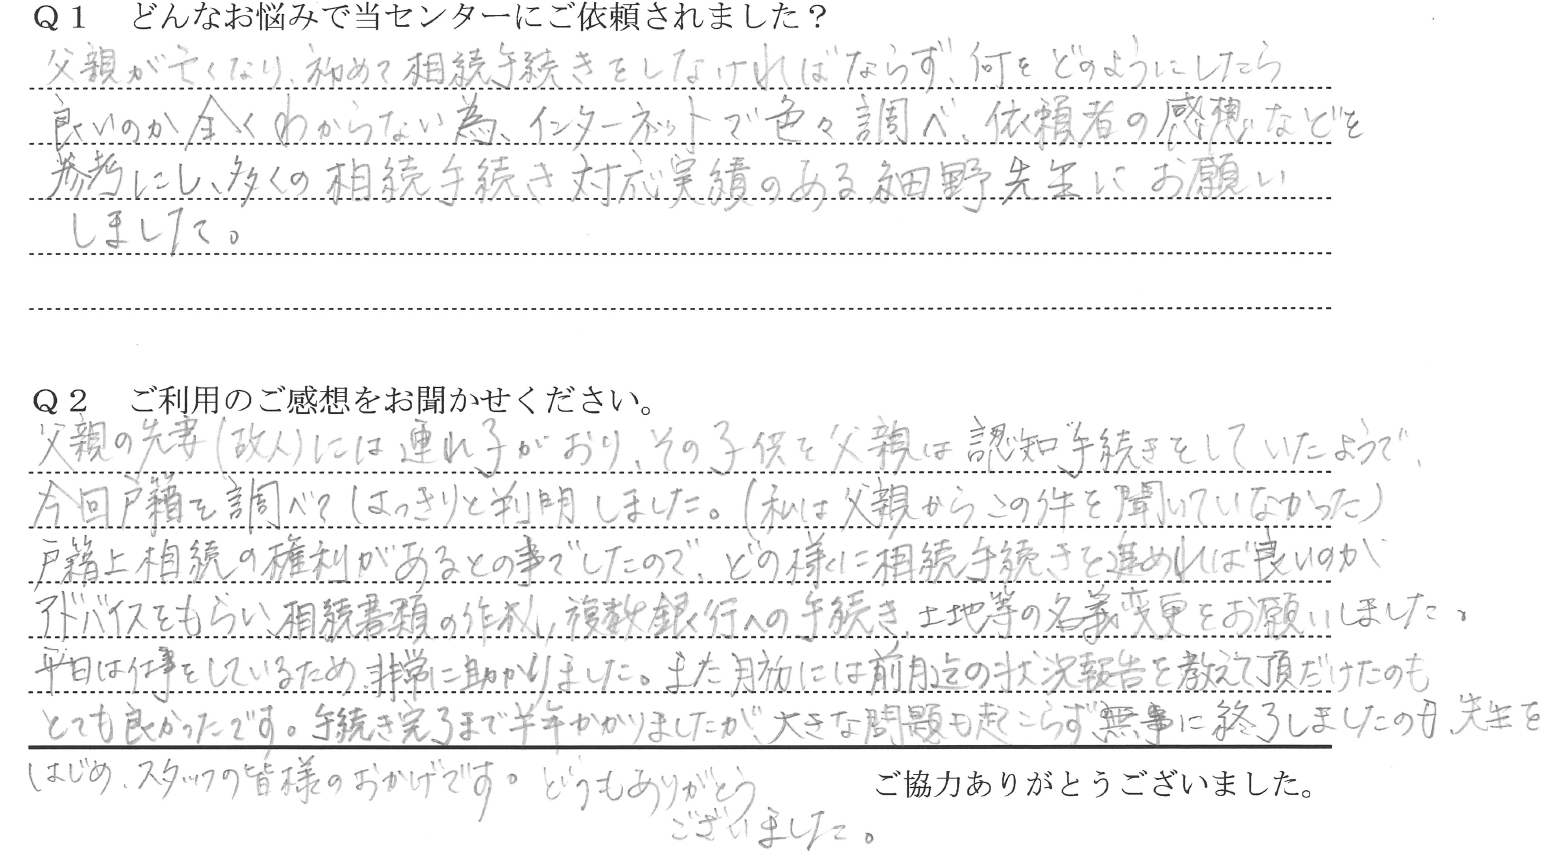 Q1 どんなお悩みで当センターにご依頼されました？
父親が亡くなり、初めて相続手続きをしなければならず、何をどのようにしたら
良いのか全くわからない為、インターネットで色々調べ、依頼者の感想などを
参考にし、多くの相続手続き対応実績のある細野先生にお願い
しました。
Q2 ご利用のご感想をお聞かせください。
父親の先妻(故人)には連れ子がおり、その子供を父親は認知手続きをしていたようで、
今回戸籍を調べてはっきりと判明しました。(私は父親からこの件を聞いていなかった)
戸籍上相続の権利があるとの事でしたので、どの様に相続手続きを進めれば良いのか
アドバイスをもらい、相続書類の作成、複数銀行への手続き、土地等の名義変更をお願いしました。
平日は仕事をしているため、非常に助かりました。また月初には前月迄の状況報告を教えて頂だけたのも
とても良かったです。手続き完了まで半年かかりましたが、大きな問題も起こらず無事に終了しましたのも、先生を
はじめ、スタッフの皆様のおかげです。どうもありがとう
ございました。
ご協力ありがとうございました。